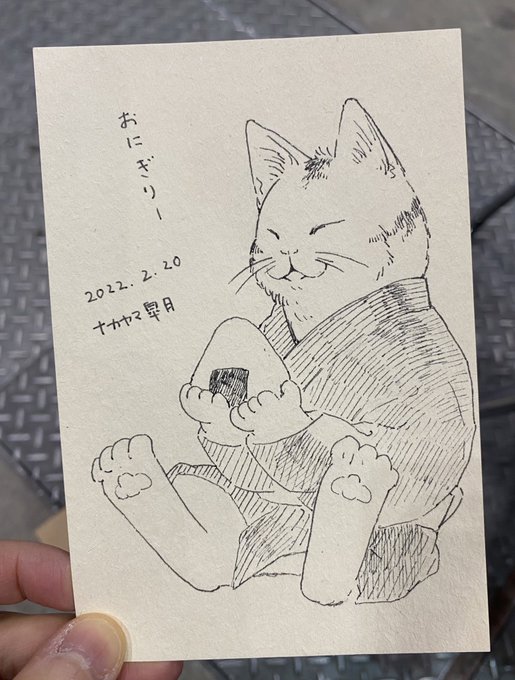 おにぎりー
2022.2.20
ナカヤマ皐月